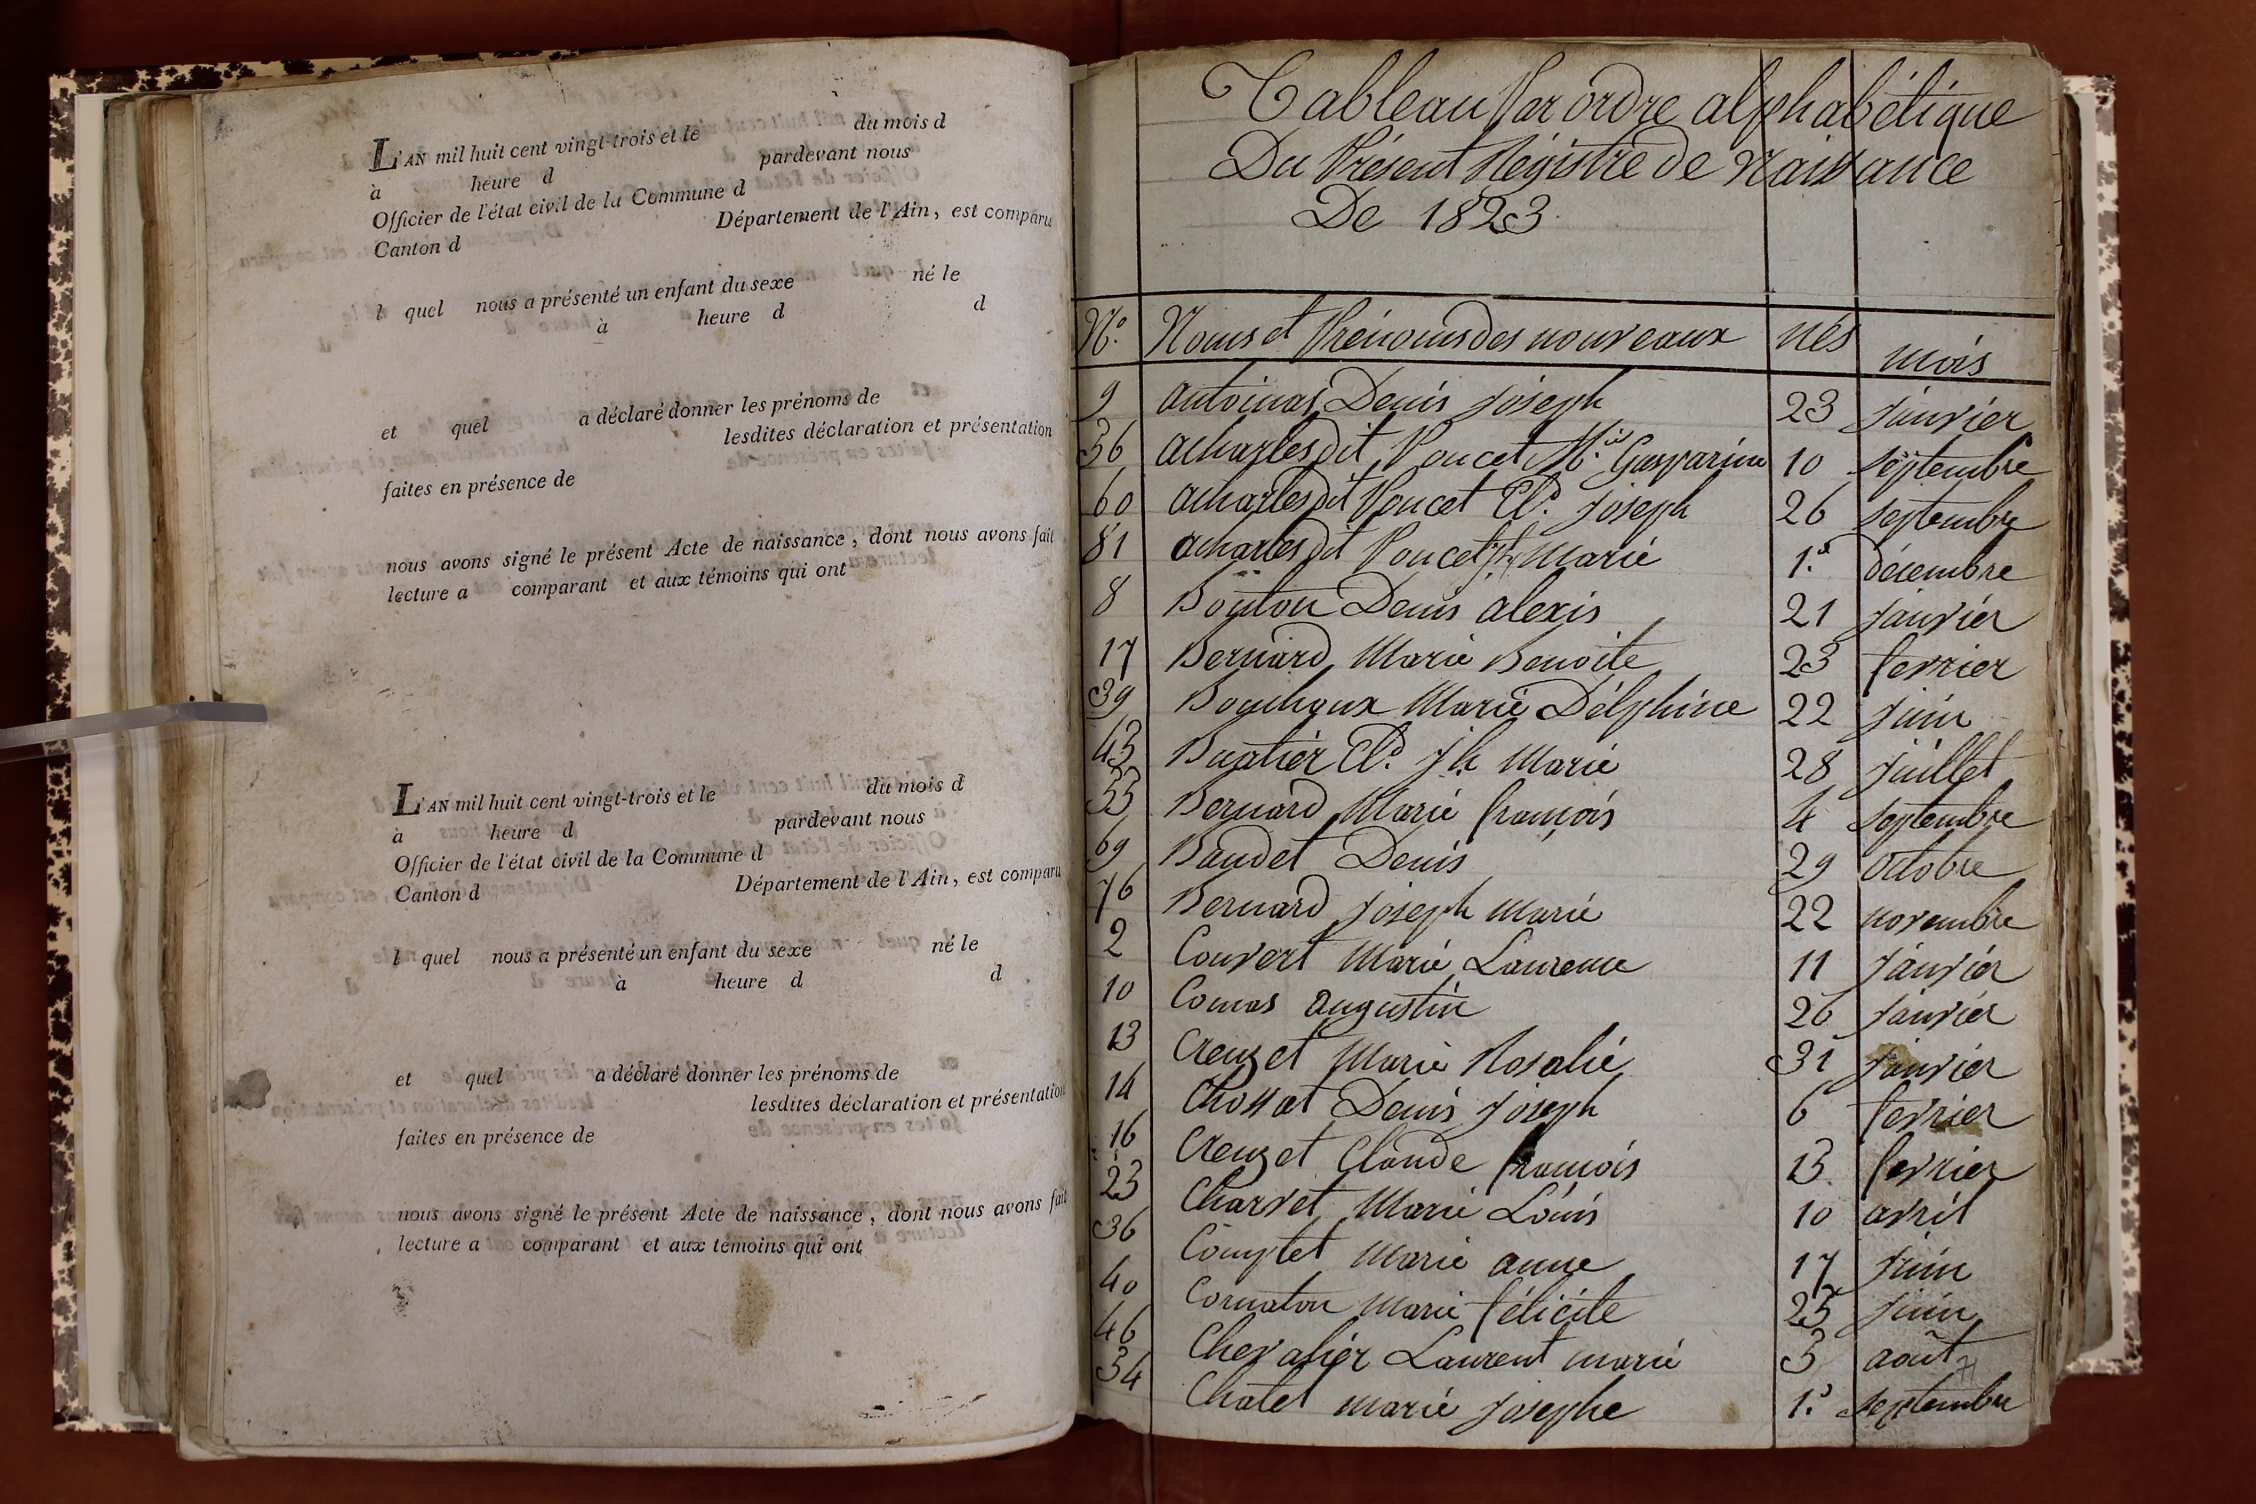 L'AN mil huit cent vingt-trois et le du mois d
à heure d pardevant nous
Officier de l'état civil de la Commune d
Canton d Département de l'Ain, est comparu
l quel nous a présenté un enfant du sexe né le
à heure d d
et quel a déclaré donner les prénoms de
lesdites déclaration et présentation
faites en présence de
nous avons signé le présent Acte de naissance, dont nous avons fait
lecture a comparant et aux témoins qui ont
L'AN mil huit cent vingt-trois et le du mois d
à heure d pardevant nous
Officier de l'état civil de la Commune d
Canton d Département de l'Ain, est comparu
l quel nous a présenté un enfant du sexe né le
à heure d d
et quel a déclaré donner les prénoms de
lesdites déclaration et présentation
faites en présence de
nous avons signé le présent Acte de naissance, dont nous avons fait
lecture a comparant et aux témoins qui ont
Tableau Par ordre alphabétique
Du Présent Régistre de Naissance
De 1823
N.º Noms et Prénoms des nouveaux nés mois
9 Denis Joseph 23 janvier
56 acharles dit Poncet M.ie Gasparine 10 septembre
60 acharles dit Poncet Cl.d Joseph 26 septembre
81 acharles dit Poncet Marie 1.er décembre
8 Bouton Denis alexis 21 janvier
17 Bernard Marie Benoite 23 fevrier
39 Bouthoux Marie Délphine 22 juin
43 Cl.d J.h Marie 28 juillet
55 Bernard Marie françois 4 septembre
69 Baudet Denis 29 octobre
76 Bernard Joseph marie 22 novembre
2 Convert Marie Laurence 11 janvier
10 Comas augustin 26 janvier
13 Creuzet Marie Rosalie 31 janvier
14 Chossat Denis Joseph 6 fevrier
16 Creuzet Claude françois 13 fevrier
23 Charvet Marie Louis 10 avril
36 Comptet Marie anne 17 juin
40 Cornaton Marie félicite 25 juin
46 Chevalier Laurent marie 3 août
54 Chatel marie josephe 1.er septembre